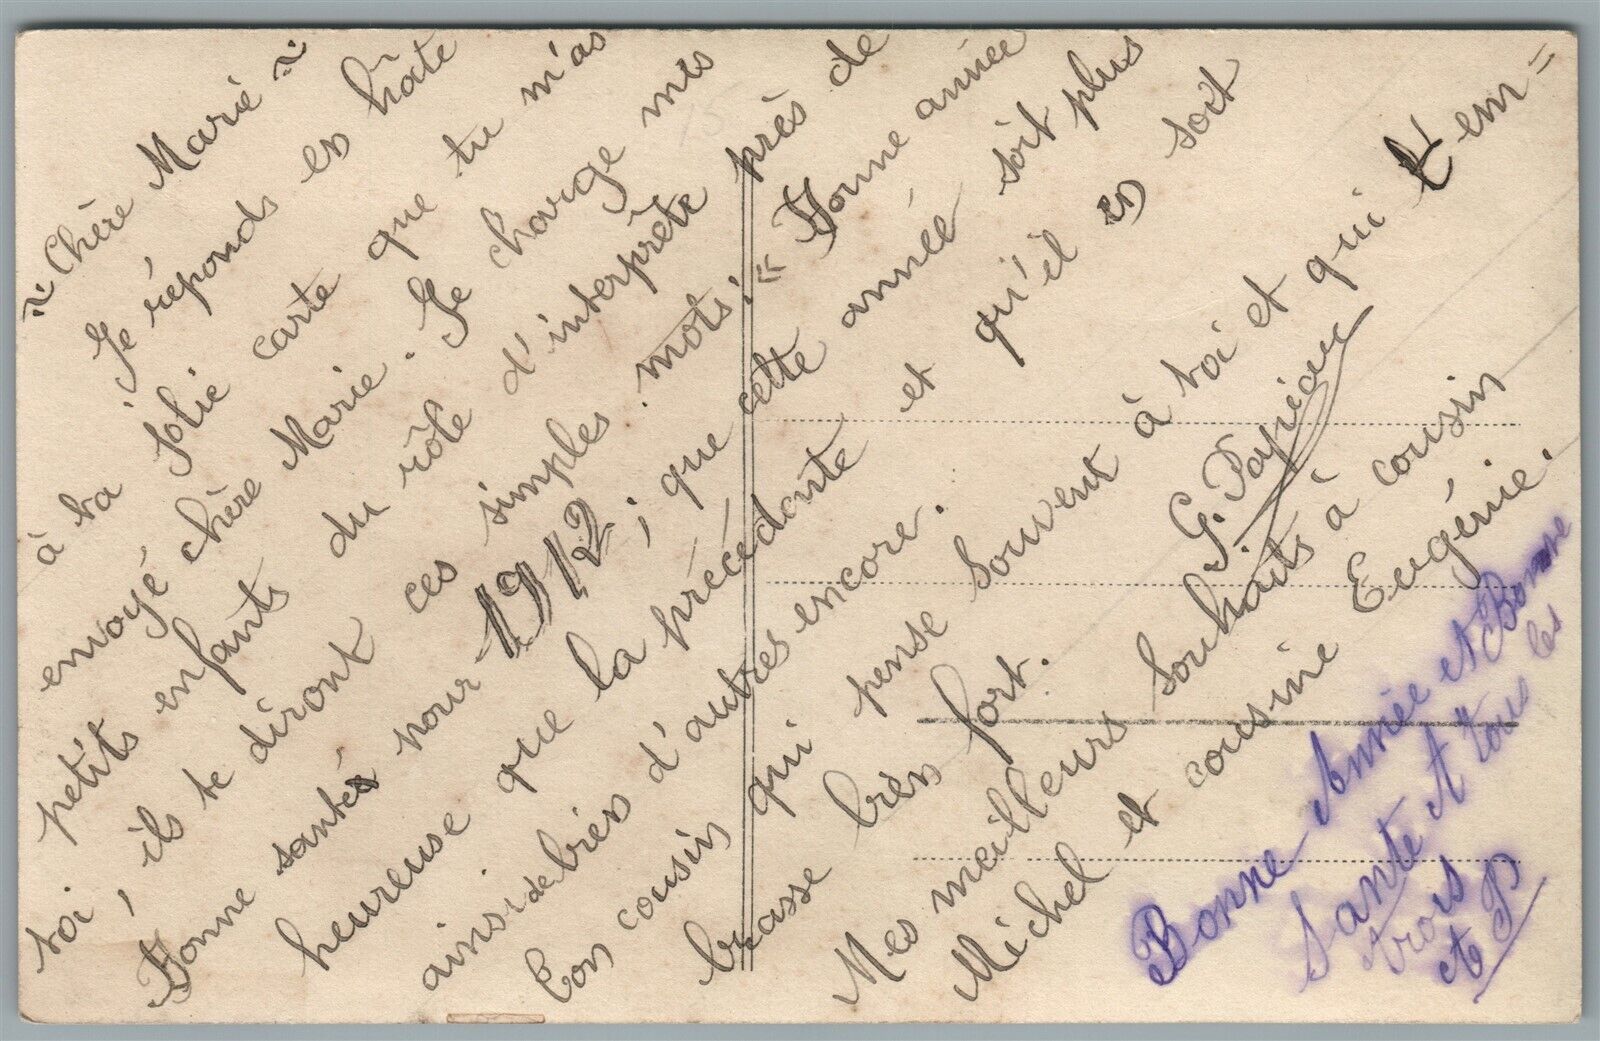 ~ Chère Marie ~
Je réponds en hâte
à ta jolie carte que tu m'as
envoyé chère Marie. Je charge mes
petits enfants du rôle d'interprète près de
toi, ils te diront ces simples mots: « Bonne année
Bonne santé pour 1912 ; que cette année soit plus
heureuse que la précédante et qu'il en soit
ainsi de bien d'autres encore.
Ton cousin qui pense souvent à toi et qui t'em=
brasse bien fort.
G. Papion
Mes meilleurs souhaits à cousin
Michel et cousine Eugénie.
Bonne Année et Bonne
Sante A tous les
trois
et P